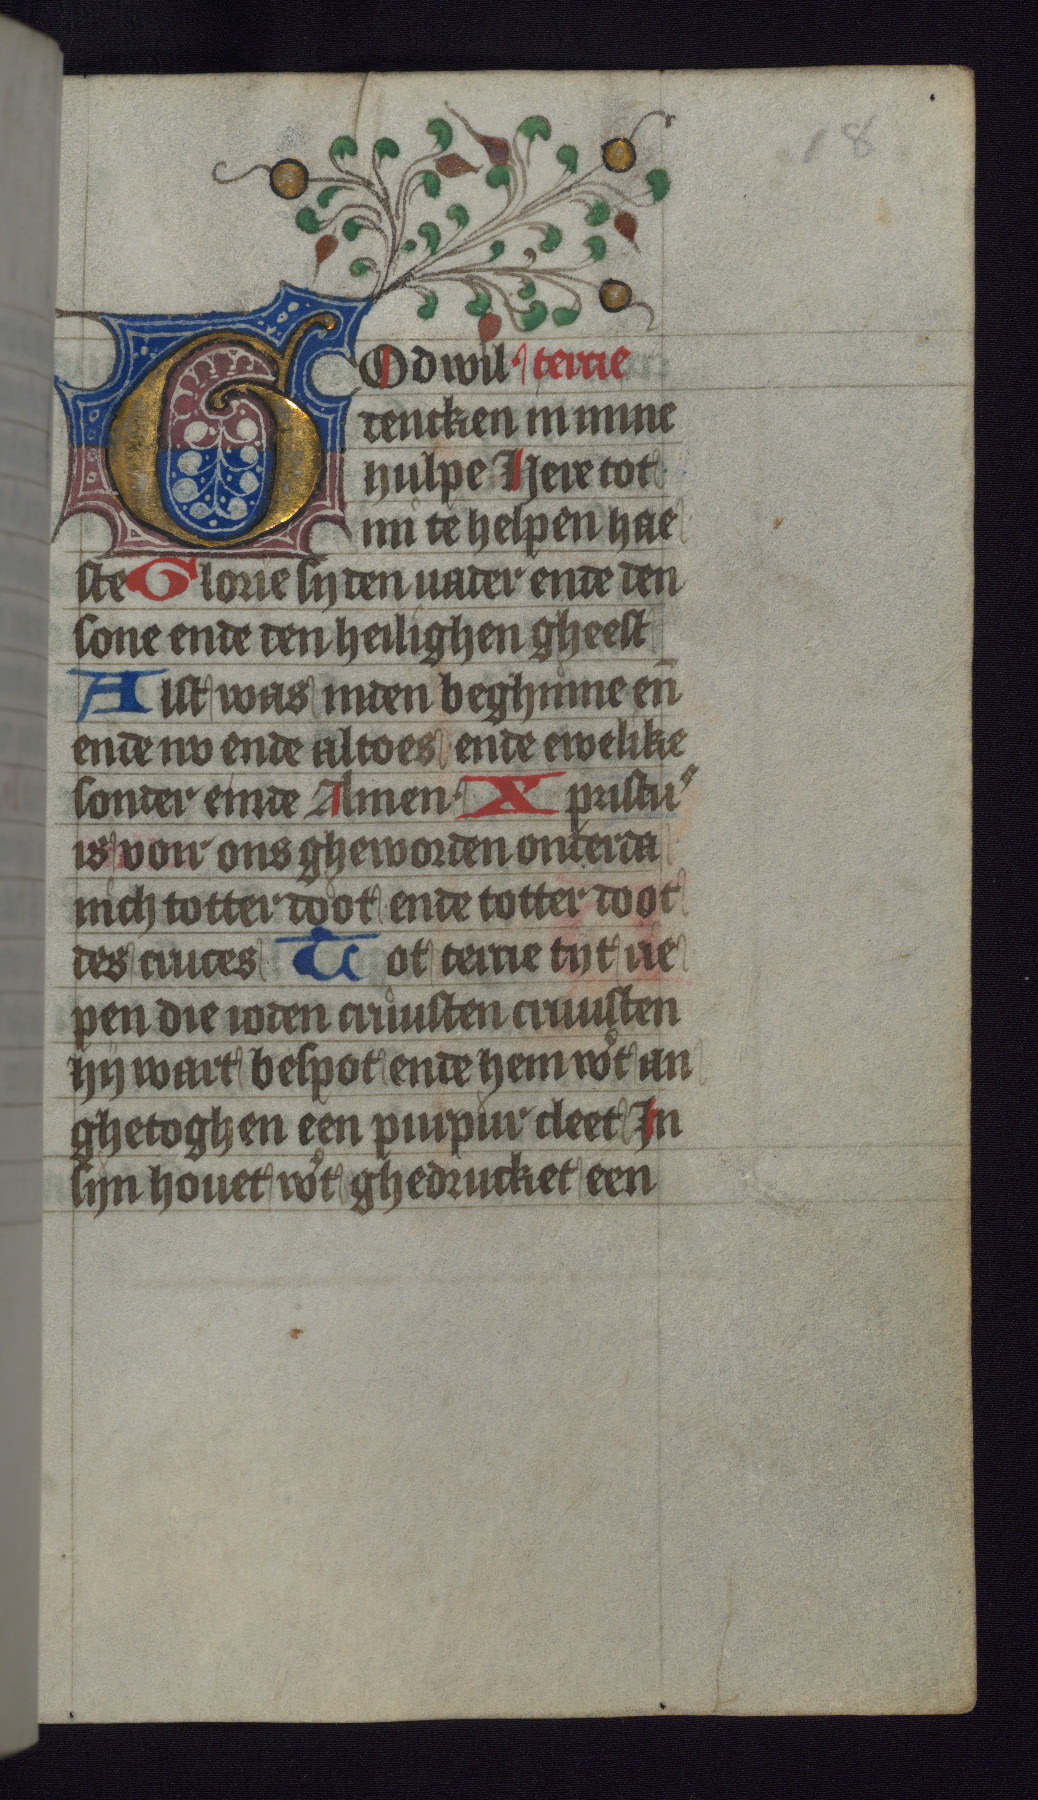 18
GOdwil · tercie
dencken in mine
hulpe Here tot
mi te helpen hae
ste Glorie sy den uader ende den
sone ende den heilighen gheest
Alst was inden beghinne en̄
ende nv ende altoes ende ewelike
sonder einde Amen · Xpristus
is voir ons gheworden onderda
nich totter doot ende totter doot
des cruces Tot tercie tijt rie
pen die ioden cruusten cruusten
hij wart bespot ende hem wͦt an
ghetoghen een purpur cleet In
sijn houet wͦt ghedrucket een